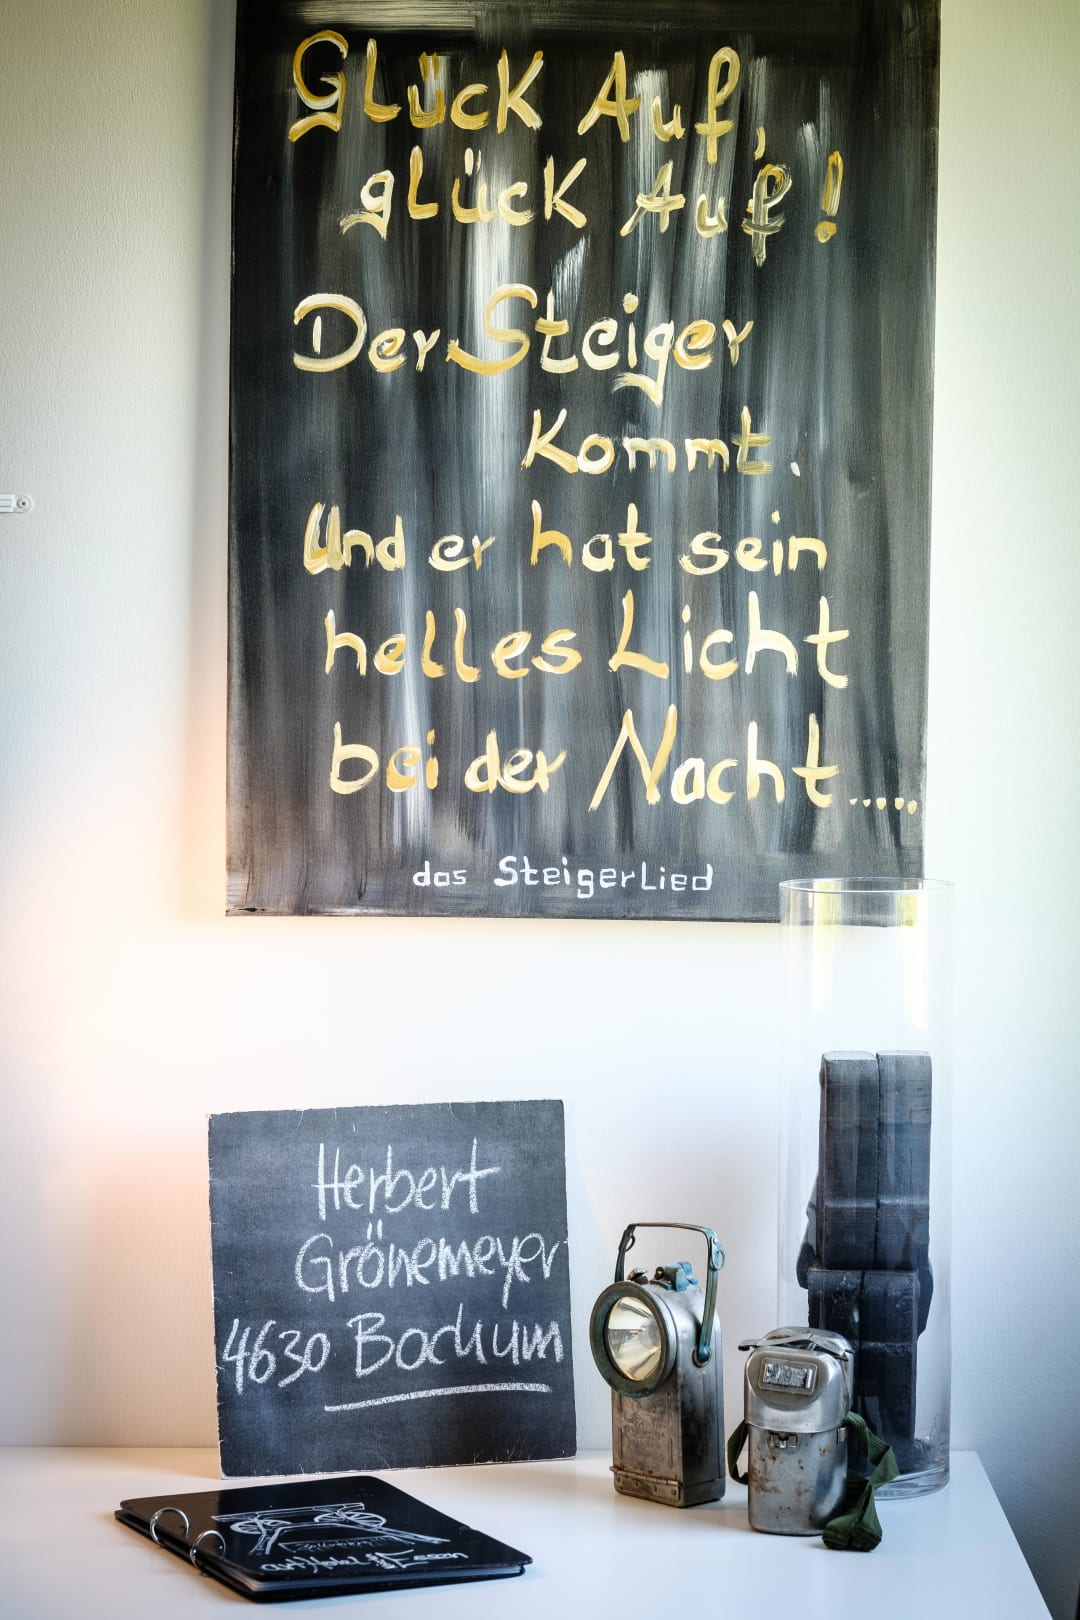 Glück Auf,
glück Auf!
Der Steiger
Kommt.
Und er hat sein
helles Licht
bei der Nacht.....
das SteigerLied
Herbert
Grönemeyer
4630 Bochum
Essen